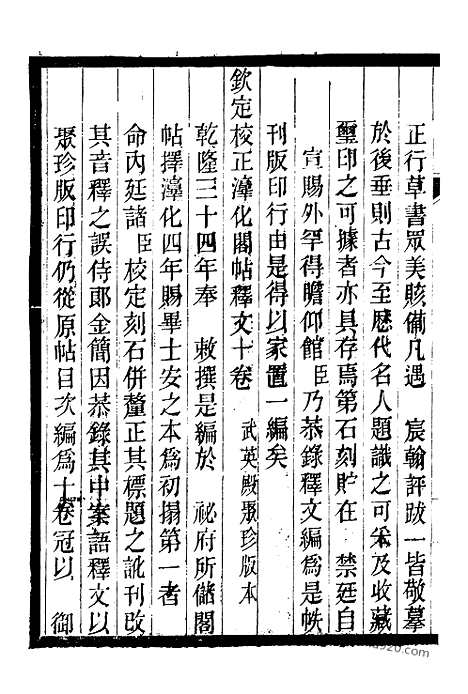 正行草書眾美賅備凡遇　宸翰評跋一皆敬摹
於後垂則古今至歷代名人題識之可采及收藏
璽印之可據者亦具存焉第石刻貯在　禁廷自
宣賜外罕得瞻仰館臣乃恭錄釋文編為是帙
刊版印行由是得以家置一編矣
欽定校正淳化閣帖釋文十卷　武英殿聚珍版本
乾隆三十四年奉　敕撰是編於　祕府所儲閣
帖擇淳化四年賜畢士安之本為初搨第一者
命內廷諸臣校定刻石併釐正其標題之訛刊改
其音釋之誤侍郎金簡因恭錄其中案語釋文以
聚珍版印行仍從原帖目次編為十卷冠以　御